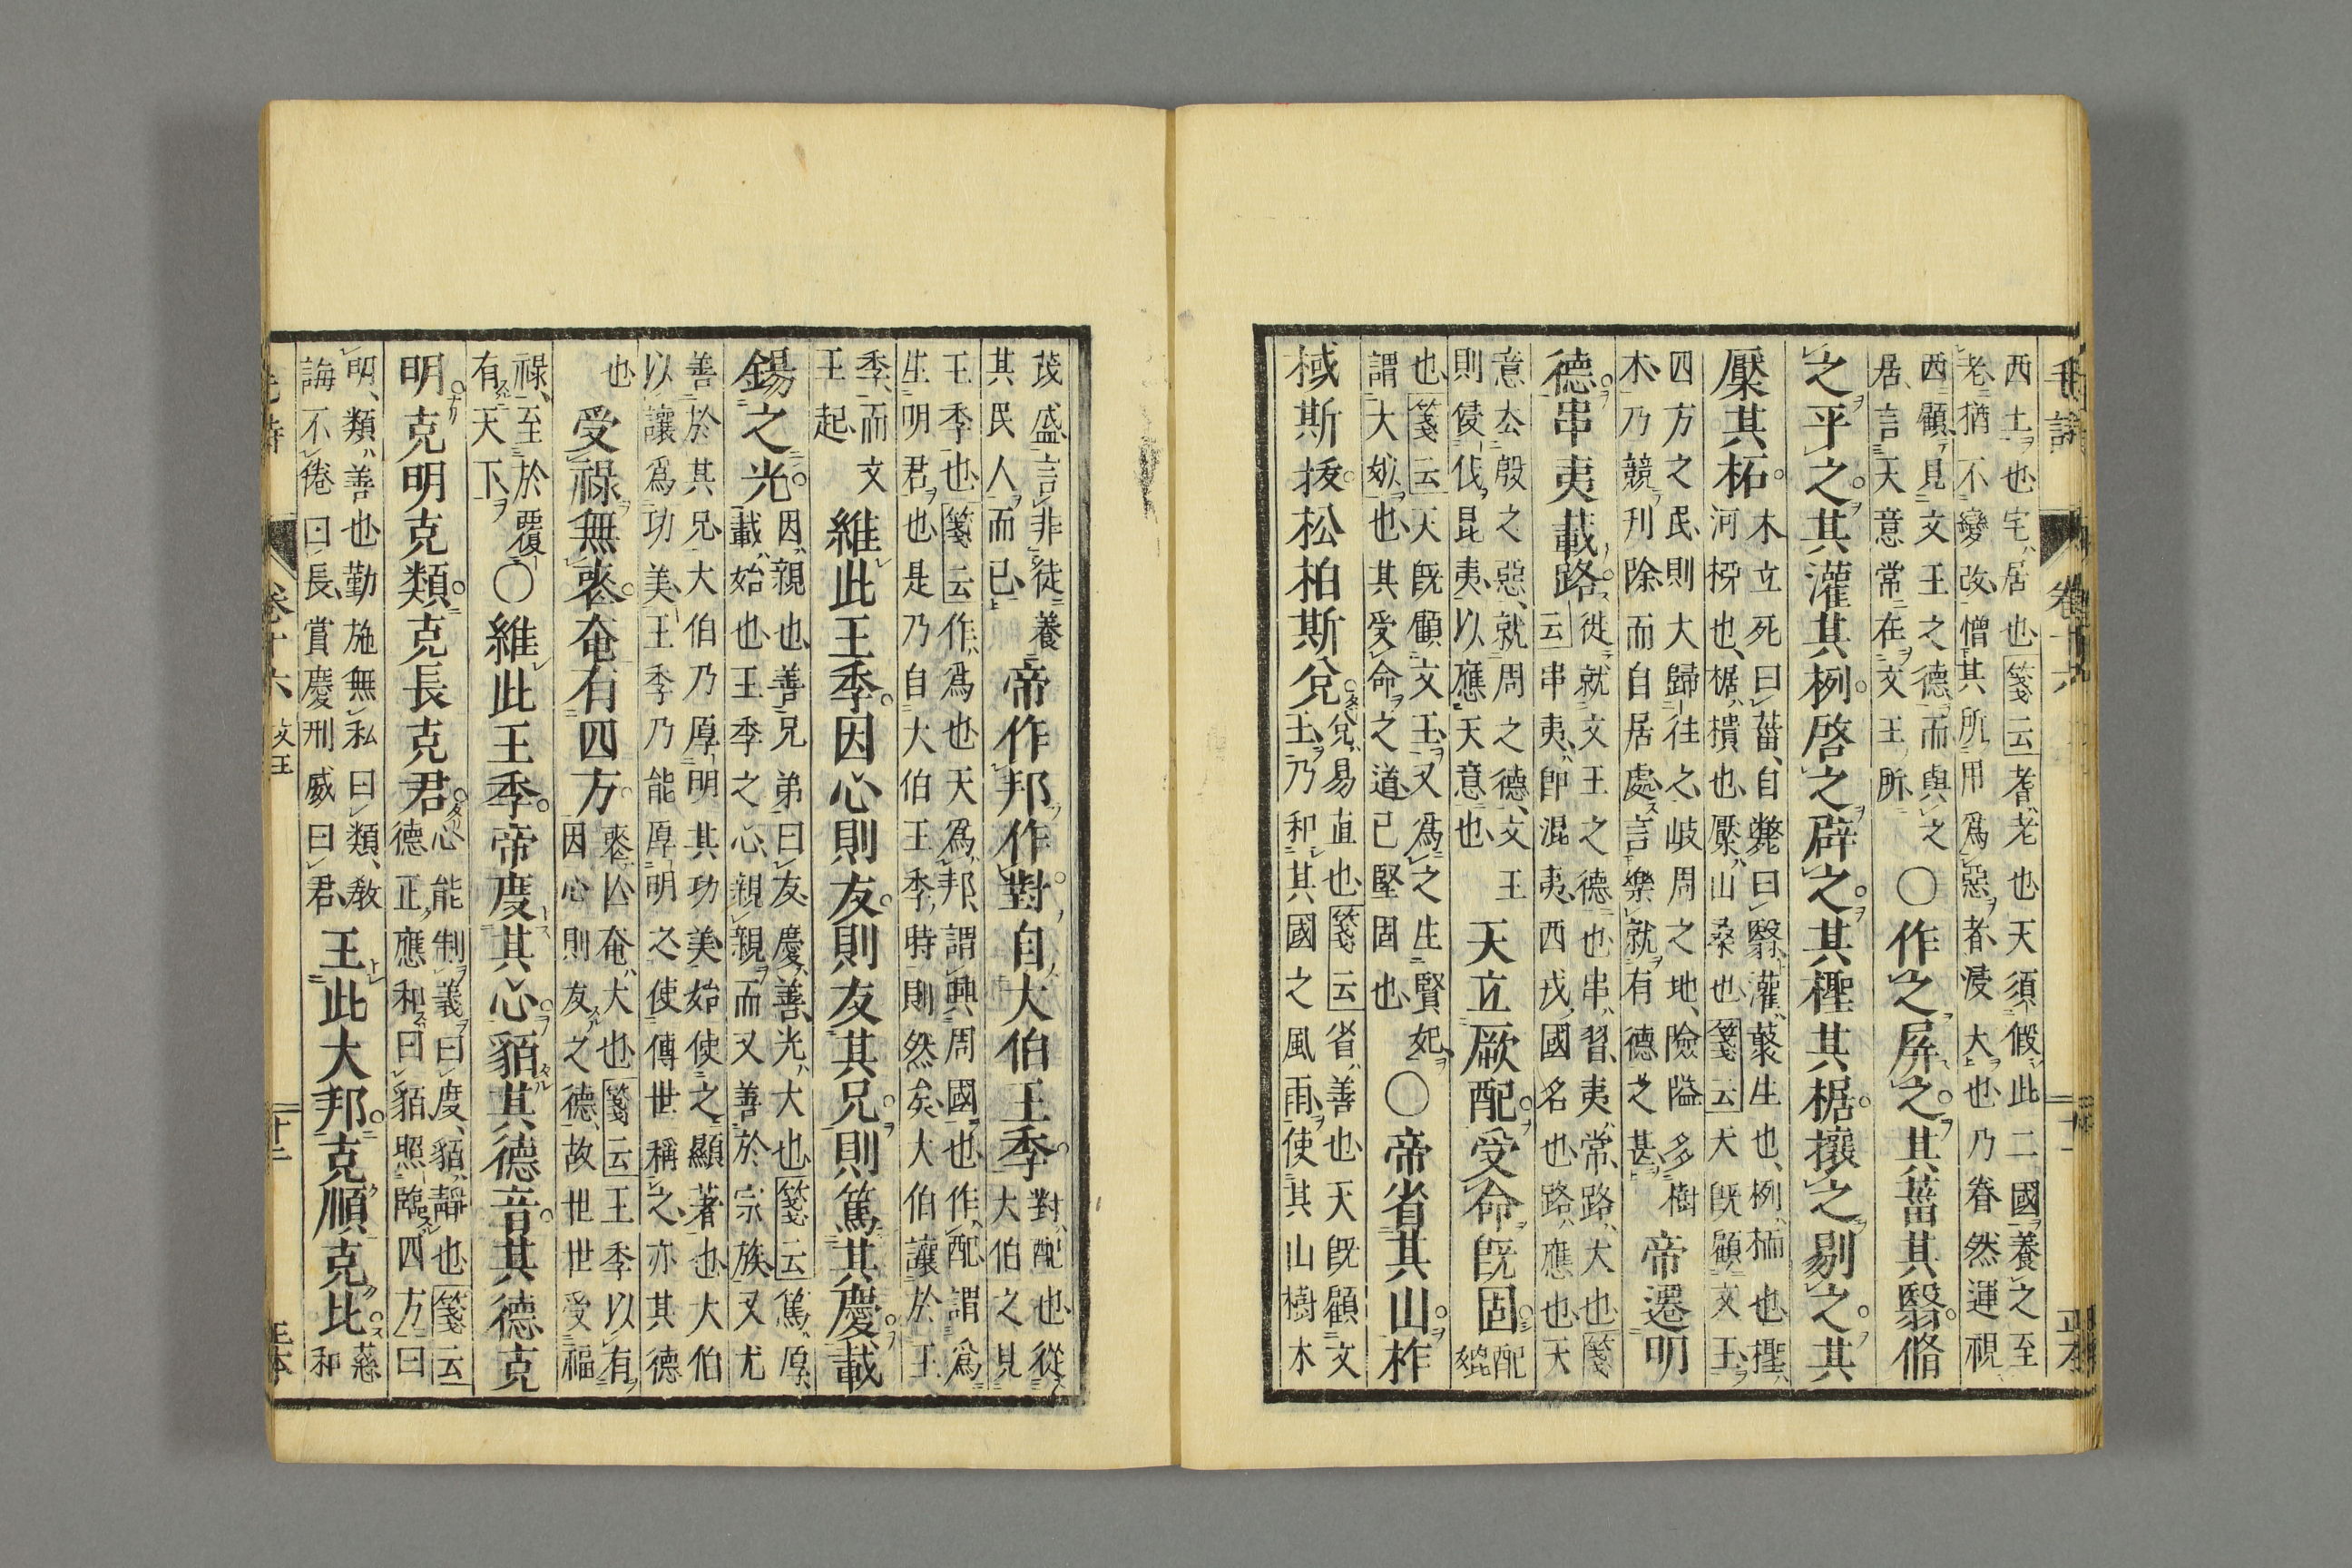 毛詩 卷十六
西土也宅居也箋云耆老也天須假此二國養之至
老猶不變改憎其所用爲惡者浸大也乃眷然運視
西顧見文王之德而與之
居言天意常在文王所
○作之屏之其菑其翳脩
之平之其灌其栵啓之辟之其檉其椐攘之剔之其
檿其柘
木立死曰菑自斃曰翳灌藂生也栵栭也檉
河栁也椐樻也檿山桑也箋云天旣顧文王
四方之民則大歸往之岐周之地險隘多樹
木乃競刋除而自居處言樂就有德之甚
帝遷明
德串夷載路
徙就文王之德也串習夷常路大也箋
云串夷卽混夷西戎國名也路應也天
意去殷之惡就周之德文王
則侵伐昆夷以應天意也
天立厥配受命旣固
配
媲
也箋云天旣顧文王又爲之生賢妃
謂大姒也其受命之道已堅固也
○帝省其山柞
棫斯拔松柏斯兌
兌易直也箋云省善也天旣顧文
王乃和其國之風雨使其山樹木
茂盛言非徒養
其民人而已
帝作邦作對自大伯王季
對配也從
大伯之見
王季也箋云作爲也天爲邦謂興周國也作配謂爲
生明君也是乃自大伯王季時則然矣大伯讓於王
季而文
王起
維此王季因心則友則友其兄則篤其慶載
錫之光
因親也善兄弟曰友慶善光大也箋云篤厚
載始也王季之心親親而又善於宗族又尤
善於其兄大伯乃厚明其功美始使之顯著也大伯
以讓爲功美王季乃能厚明之使傳世稱之亦其德
也
受祿無喪奄有四方
喪亾奄大也箋云王季以有
因心則友之德故世世受福
祿至於覆
有天下
○維此王季帝度其心貊其德音其德克
明克明克類克長克君
心能制義曰度貊靜也箋云
德正應和曰貊照臨四方曰
明類善也勤施無私曰類敎
誨不倦曰長賞慶刑威曰君
王此大邦克順克比
慈
和
卷十六 文王 十二